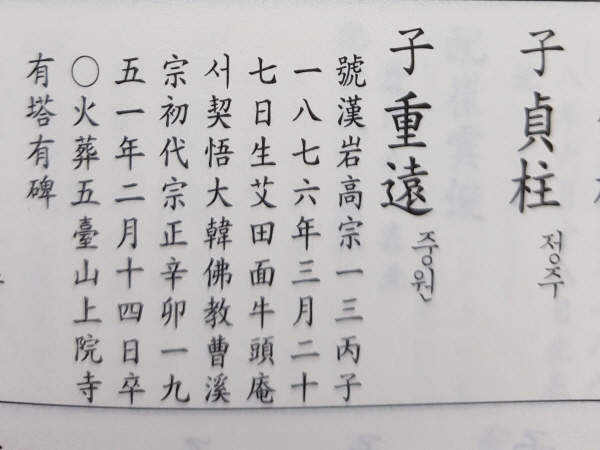 子貞柱 정주
子重遠 중원
號漢岩高宗一三丙子
一八七六年三月二十
七日生艾田面牛頭庵
서契悟大韓佛教曹溪
宗初代宗正辛卯一九
五一年二月十四日卒
〇火葬五臺山上院寺
有塔有碑